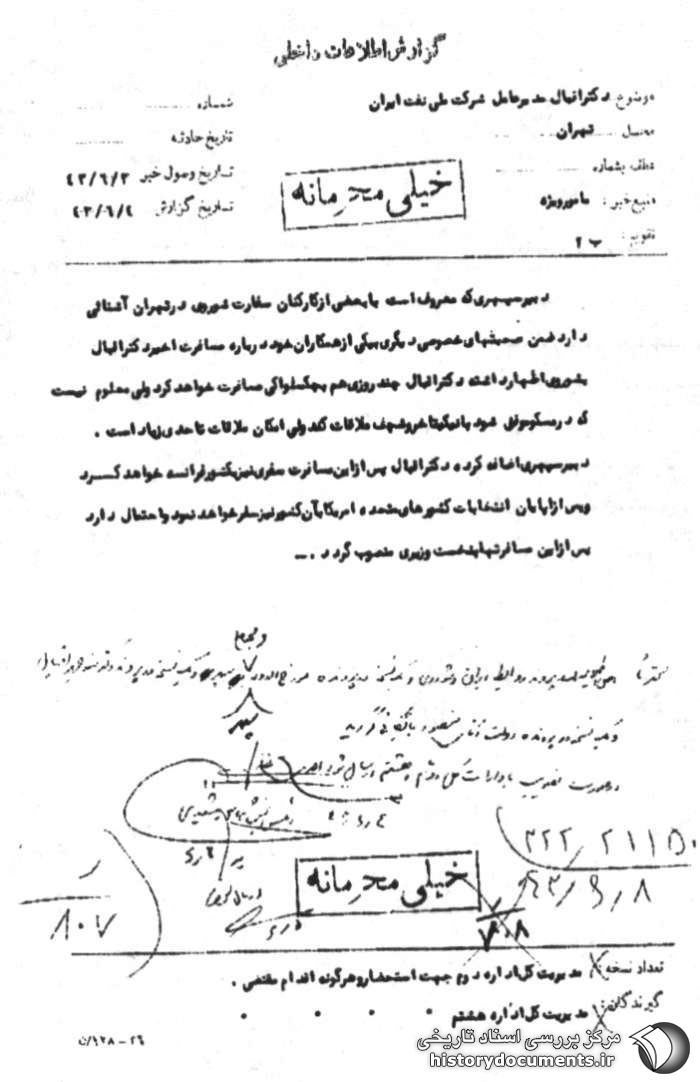 گزارش اطلاعات داخلی
موضوع : دکتر اقبال مدیر عامل شرکت ملی نفت ایران
شماره
محل تهران
تاریخ حادثه
عطف بشماره
تاریخ وصول خبر ۴۳/۶/۳
منبع خبر : مامور ویژه
تاریخ گزارش ۴۳/۶/۴
تقویم : ب ۲
خیلی محرمانه
دبیر سپهری که معروف است با بعضی از کارکنان سفارت شوروی در تهران آشنائی
دارد ضمن صحبتهای خصوصی دیگری بیکی از همکاران خود درباره مسافرت اخیر دکتر اقبال
بشوروی اظهار داشته دکتر اقبال چند روزی هم بچکسلواکی مسافرت خواهد کرد ولی معلوم نیست
که در مسکو موفق شود با نیکیتا خروشچف ملاقات کند ولی امکان ملاقات تا حدی زیاد است .
دبیر سپهری اضافه کرده دکتر اقبال پس از این مسافرت سفری نیز بکشور فرانسه خواهد کرد
و پس از پایان انتخابات کشورهای متحده امریکا بآن کشور نیز سفر خواهد نمود و احتمال دارد
پس از این مسافرتها بنخست وزیری منصوب گردد . ــ
سپهر
و یک نسخه در پرونده دولت آقای منصور بایگانی گردید
در صورت تصویب بادارات کل دوم و هشتم ارسال شود
۳۲۲/۲۱۱۵۰
۴۳/۶/۸
خیلی محرمانه
۸۰۷
۷۰۸
تعداد نسخه :
مدیریت کل اداره دوم جهت استحضار و هرگونه اقدام مقتضی .
گیرندگان :
مدیریت کل اداره هشتم
۲۶-۹۲۸/ن
مرکز بررسی اسناد تاریخی
historydocuments.ir